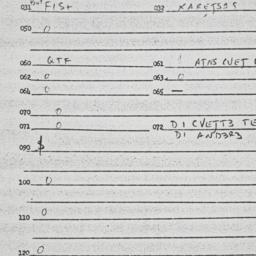 031 FIS+ 032 XARETS3S
050 0
060 GTF 061
062 0 063 0
064 0 065 —
070 0
071 0 072 DI CVETT3 TE
DI ANDER3
090 $
100 0
110 0
120 0